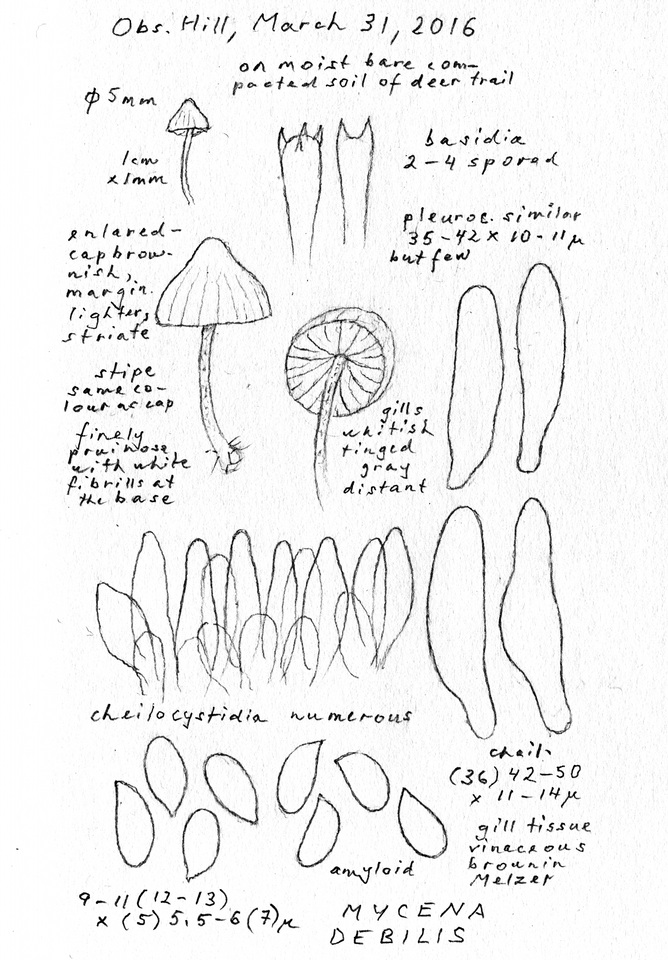 Obs. Hill, March 31, 2016
on moist bare com-
pacted soil of deer trail
ϕ 5mm
1cm
x1mm
basidia
2-4 sporad
pleuroc. similar
35-42 x 10-11µ
but few
enlared-
cap brow-
nish,
margin
lighter,
striate
stipe
same co-
lour as cap
finely
pruinose
with white
fibrills at
the base
gills
whitish
tinged
gray
distant
cheilocystidia numerous
cheil.
(36) 42-50
x 11-14µ
gill tissue
vinaceous
brown in
Melzer
amyloid
9-11 (12-13)
x (5) 5,5-6 (7)µ
MYCENA
DEBILIS